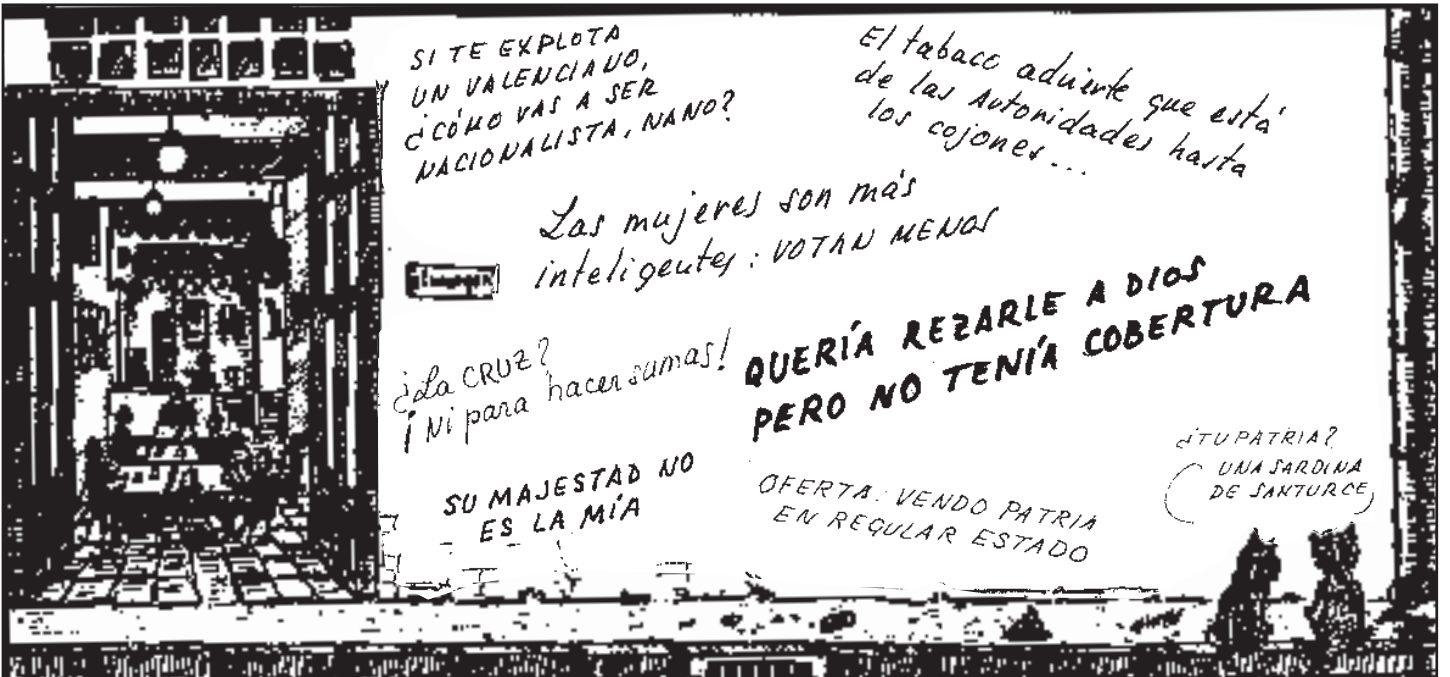 SI TE EXPLOTA
UN VALENCIANO,
¿CÓMO VAS A SER
NACIONALISTA, NANO?
El tabaco advierte que está
de las Autoridades hasta
los cojones...
Las mujeres son más
inteligentes: VOTAN MENOS
¿La CRUZ?
¡Ni para hacer sumas!
QUERÍA REZARLE A DIOS
PERO NO TENÍA COBERTURA
SU MAJESTAD NO
ES LA MÍA
OFERTA: VENDO PATRIA
EN REGULAR ESTADO
¿TU PATRIA?
UNA SARDINA
DE SANTURCE